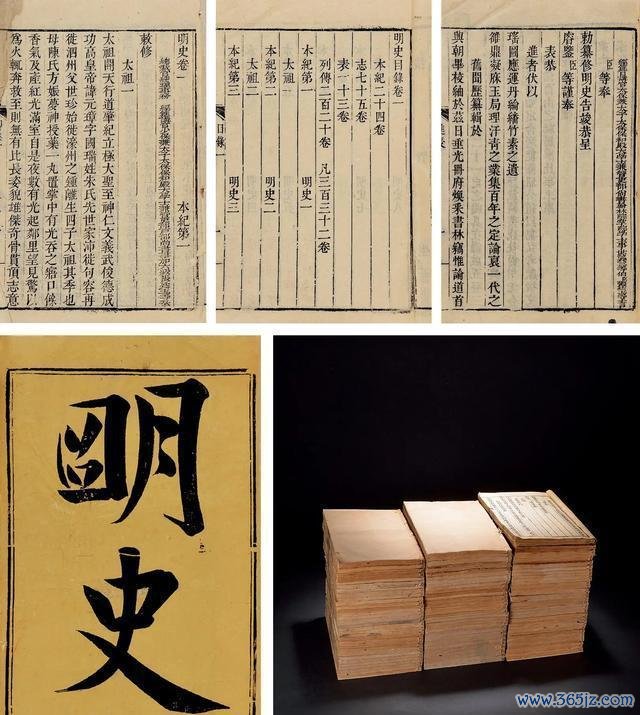 明史卷一 本紀第一
敕修
太祖一
太祖開天行道肇紀立極大聖至神仁文義武俊德成
功高皇帝諱元璋字國瑞姓朱氏先世家沛徙句容再
徙泗州父世珍始徙濠州之鍾離生四子太祖其季也
母陳氏方娠夢神授藥一丸置掌中有光吞之寤口餘
香氣及產紅光滿室自是夜數有光起鄰里望見驚以
為火輒奔救至則無有比長姿貌雄傑奇骨貫頂志意
明史目錄卷一
本紀二十四卷
志七十五卷
表一十三卷
列傳二百二十卷 凡三百三十二卷
本紀第一 明史一
太祖一
本紀第二 明史二
太祖二
本紀第三 明史三
目錄
臣
勅纂修明史告竣恭呈
臣等謹奉
表恭
進者伏以
瑤圖應運丹綸繙竹素之遺
鼎凝庥玉局理汗青之業集百年之定論裒一代之
舊聞歷纂輯於
於茲日垂光冊府煥采書林竊惟論道首
明史
www.365jz.com